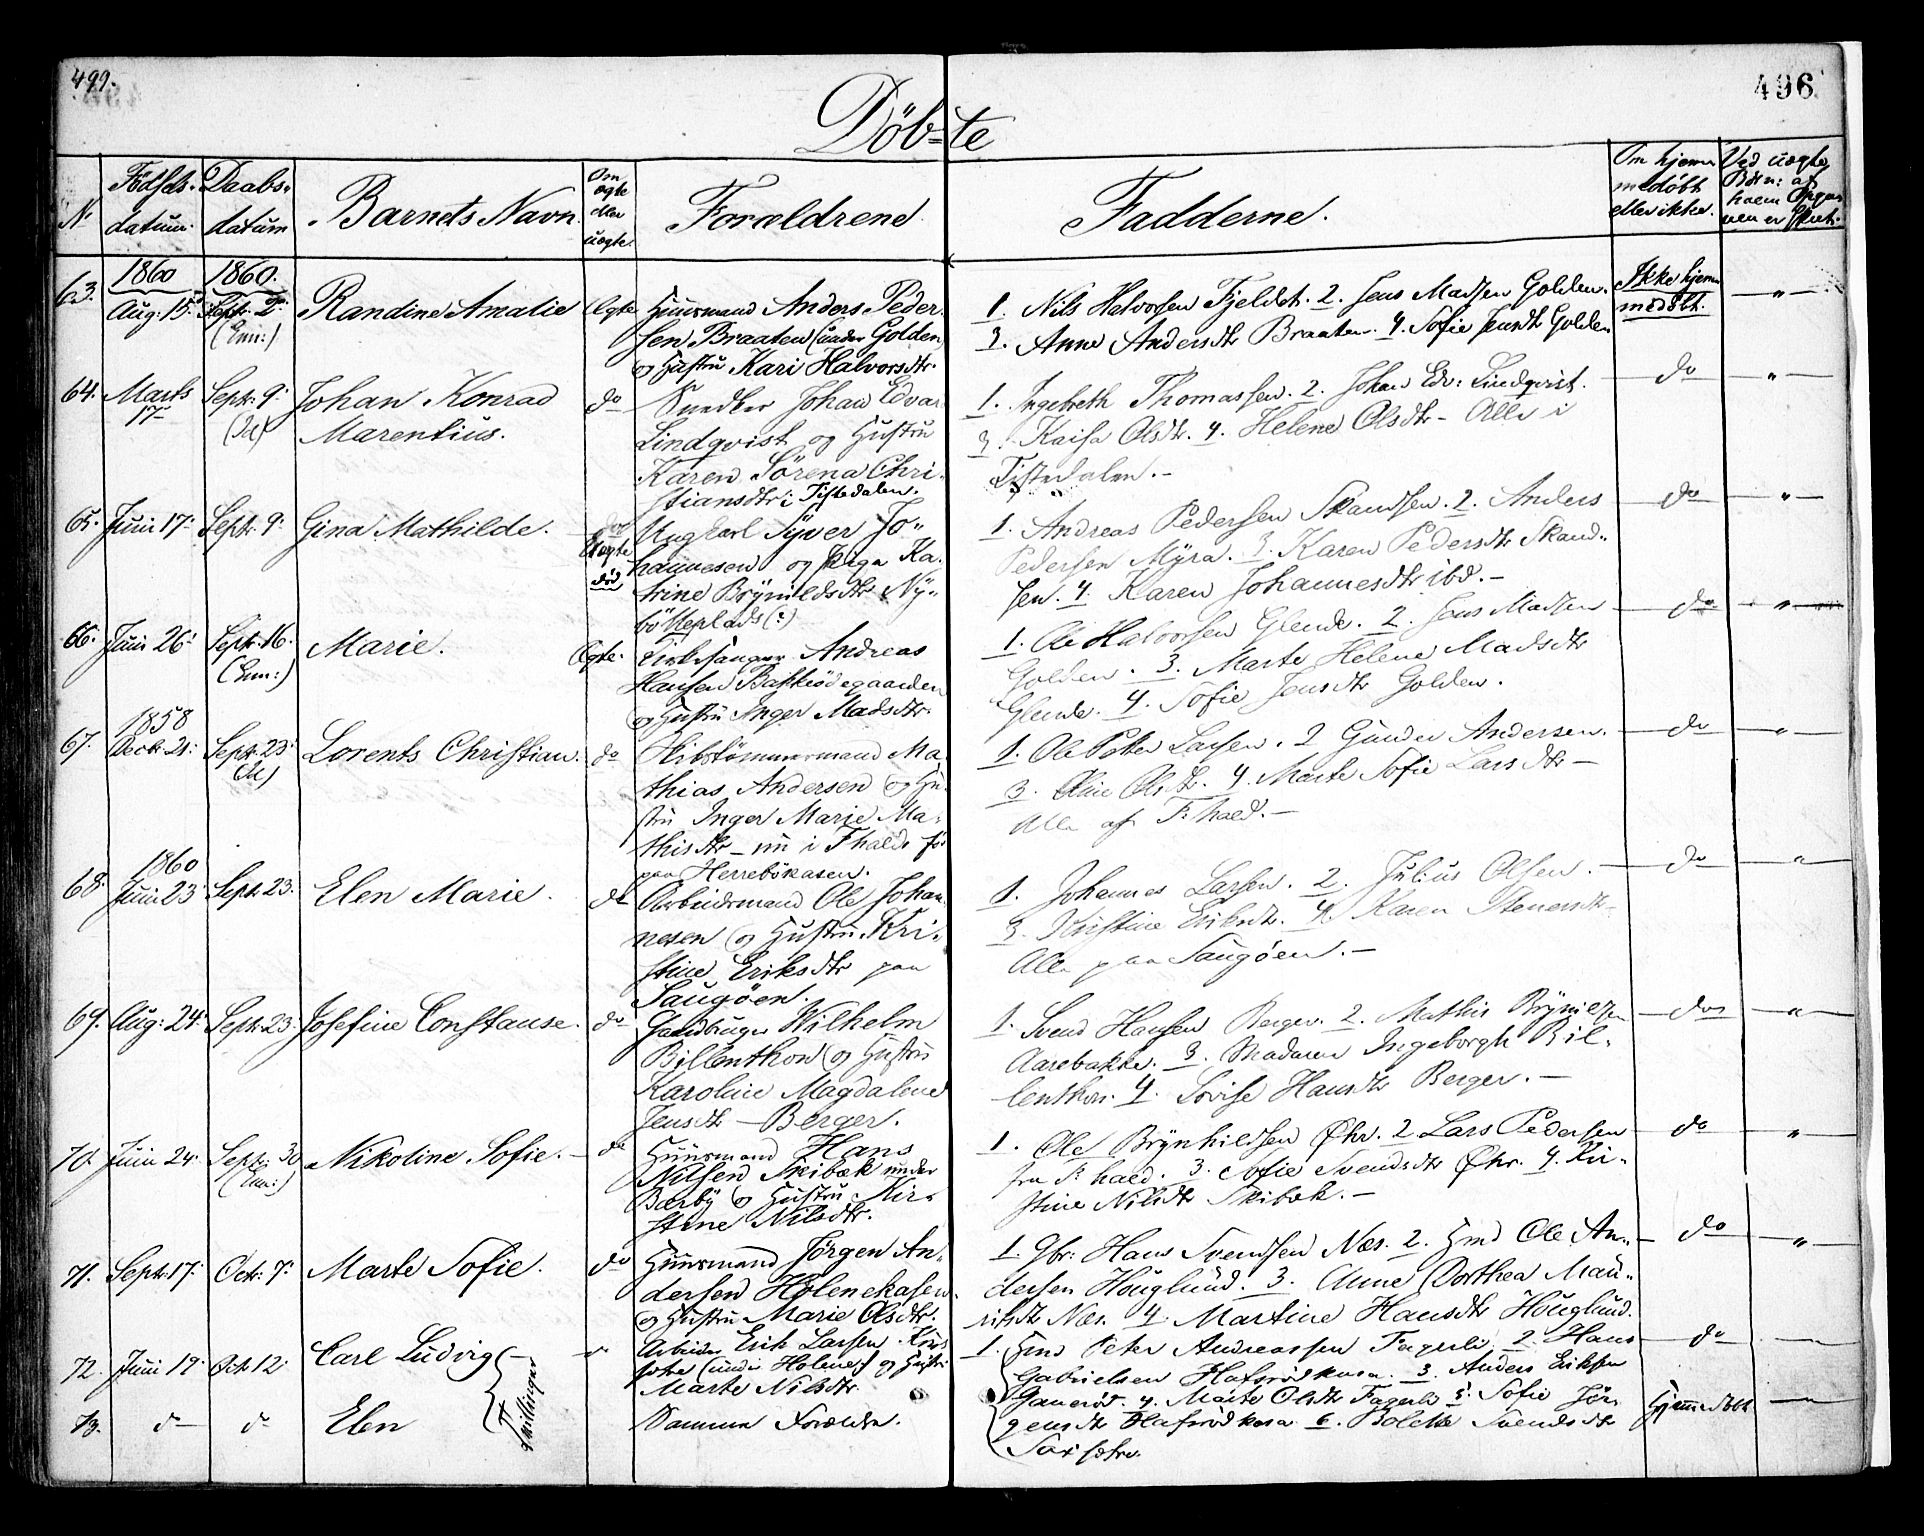 499.
496
Döb-te
N
Födsels-
datum.
Daabs-
datum
Barnets Navn.
Om
ægte
eller
uægte.
Forældrene
Fadderne.
Om hjem-
medöbt
eller ikke.
Ved uægte
Börn: af
hvem
63.
1860
Aug: 15.
1860.
Sept: 2:
(Enn:)
Randine Amalie
Ægte
Huusmand Anders Peder-
sen Braaten (under Golden)
og Hustru Kari Halvorsdtr.
1. Nils Halvorsen Fjeldet. 2. Jens Madsen Golden.
3. Anne Andersdtr Braaten. 4. Sofie Jensdtr Golden
Ikke hjem-
medöbt.
64.
Marts
17
Sept: 9:
(Id)
Johan Konrad
Marentius.
do
Snedker Johan Edvar
Lindqvist og Hustru
Karen Sörena Chri-
stiansdtr i Tistedalen.
1. Ingebreth Thomassen. 2. Johan Edv: Lindqvist.
3. Kaisa Olsdtr. 4. Helene Olsdtr - Alle i
Tistedalen. -
do
65.
Juni 17:
Sept: 9:
Gina Mathilde.
Uægte
Ungkarl Syver Jo-
hannesen og Pige Ka-
trine Brynildsdtr Ny-
1. Andreas Pedersen Skandsen. 2. Anders
Pedersen Myra. 3. Karen Pedersdtr Skand-
sen. 4. Karen Johannesdtr ibd. -
do
66.
Juni 26:
Sept: 16.
(Enn:)
Marie.
Ægte.
Kirkesanger Andreas
Hansen Bakkeödegaarden
og Hustru Inger Madsdtr.
1. Ole Halvorsen Glende. 2. Jens Madsen
Golden. 3. Marte Helene Madsdtr
Glende. 4. Sofie Jensdtr Golden.
do
67.
1858
Decb: 21:
Sept: 23:
(Id)
Lorents Christian.
do
Skibstömmermand Ma-
thias Andersen og Hu-
stru Inger Marie Ma-
thisdtr - nu i Fhald för
paa Herrebökasen.
1. Ole Peter Larsen. 2 Gunder Andersen.
3. Oline Olsdtr. 4. Marte Sofie Larsdtr -
Alle af F:hald. -
do
68.
1860
Juni 23
Sept: 23.
Elen Marie.
do
Arbeidsmand Ole Johan-
nesen og Hustru Kri-
stine Eriksdtr paa
Saugöen.
1. Johannes Larsen. 2. Julius Olsen.
3. Kristine Eriksdtr. 4. Karen Stenersdtr
Alle paa Saugöen. -
do
69.
Aug: 24:
Sept: 23.
Josefine Constanse.
do
Gaardbruger Wilhelm
Billenthon og Hustru
Karoline Magdalene
Jensdtr - Berger.
1. Svend Hansen Berger. 2. Mathis Brynildsen
Aarebakke. 3. Madamen Ingeborgh Bil-
lenthon. 4. Lovise Hansdtr Berger. -
do
70.
Juni 24.
Sept: 30
(Enn:)
Nikoline Sofie.
do
Huusmand Hans
Nilsen Skibæk under
Bærby og Hustru Kir-
stine Nilsdtr.
1. Ole Brynhildsen Öhr. 2 Lars Pedersen
fra F:hald. 3. Sofie Svendsdtr Öhr. 4. Kri-
stine Nilsdtr Skibæk. -
do
71.
Sept: 17:
Octr: 7:
Marte Sofie.
do
Huusmand Jörgen An-
dersen Holenekasen
og Hustru Marie Olsdtr.
1. Gbr: Hans Svendsen Næs. 2. Hmd Ole An-
dersen Houglund. 3. Anne Dorthea Mau-
ritsdtr Næs. 4 Martine Hansdtr Houglund.
do
72.
Juni 19
Oct: 12
Carl Ludvig
Arbeider Erik Larsen
(under Holene) og Hustru
Marte Nilsdtr
1. Hmd Peter Andreassen Fagerli 2. Hans
Gabrielsen Hafsrödkasa. 3. Anders Eriksen
do
73.
do
do
Elen
Tvillinger
Samme Forældre.
Ganeröd. 4. Marte Olsdtr Fagerli 5. Sofie Jör-
gensdtr Hafsrödkasa 6. Bolette Svendsdtr
Hjemmedöbt